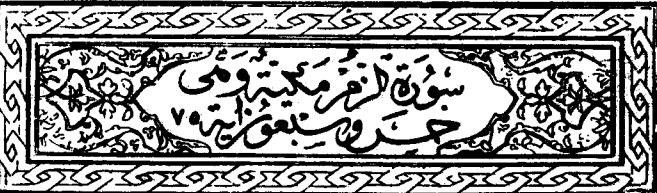 سُورَةُ الزُّمَرِ مَكِّيَّةٌ وَهِيَ
خَمْسٌ وَسَبْعُونَ آيَةً ٧٥